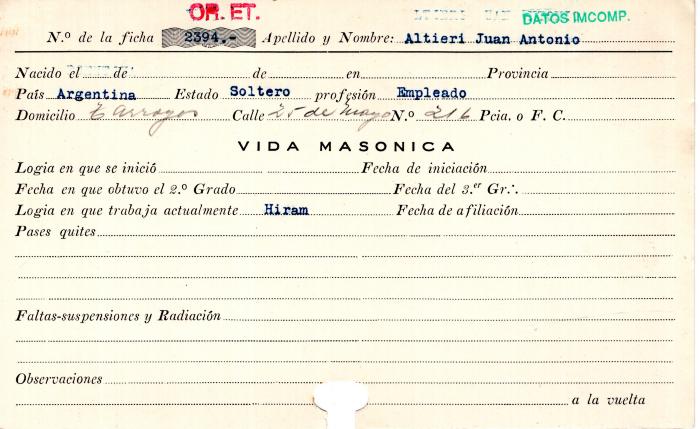 OR. ET.
DATOS IMCOMP.
N.º de la ficha 2394.- Apellido y Nombre: Altieri Juan Antonio
Nacido el de de en Provincia
País Argentina Estado Soltero profesión Empleado
Domicilio Calle 25 de Mayo N.º 216 Pcia. o F. C.
VIDA MASONICA
Logia en que se inició Fecha de iniciación
Fecha en que obtuvo el 2.º Grado Fecha del 3.er Gr∴
Logia en que trabaja actualmente Hiram Fecha de afiliación
Pases quites
Faltas-suspensiones y Radiación
Observaciones
a la vuelta